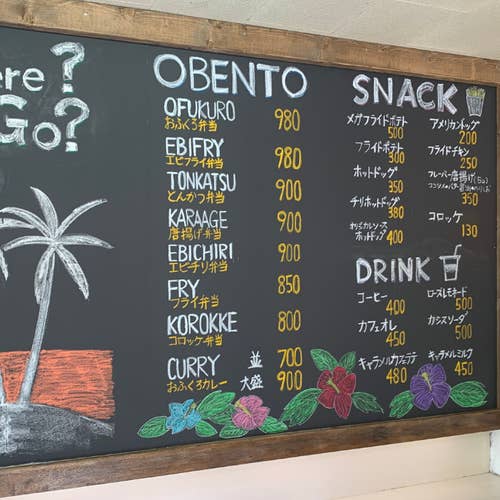 ere?
Go?
OBENTO
OFUKURO 980
おふくろ弁当
EBIFRY 900
エビフライ弁当
TONKATSU 900
とんかつ弁当
KARAAGE 900
唐揚げ弁当
EBICHIRI 900
エビチリ弁当
FRY 850
フライ弁当
KOROKKE 800
コロッケ弁当
CURRY 並 700
おふくろカレー 大盛 900
SNACK
メガフライドポテト
500
フライドポテト
300
ホットドッグ
350
チリホットドッグ
380
オリジナルソース
ホットドッグ 400
アメリカンドッグ
200
フライドチキン
250
フレーバー唐揚げ
350
コロッケ
130
DRINK
コーヒー
400
カフェオレ
450
キャラメルカフェラテ
480
ローズレモネード
500
カシスソーダ
500
キャラメルミルク
450